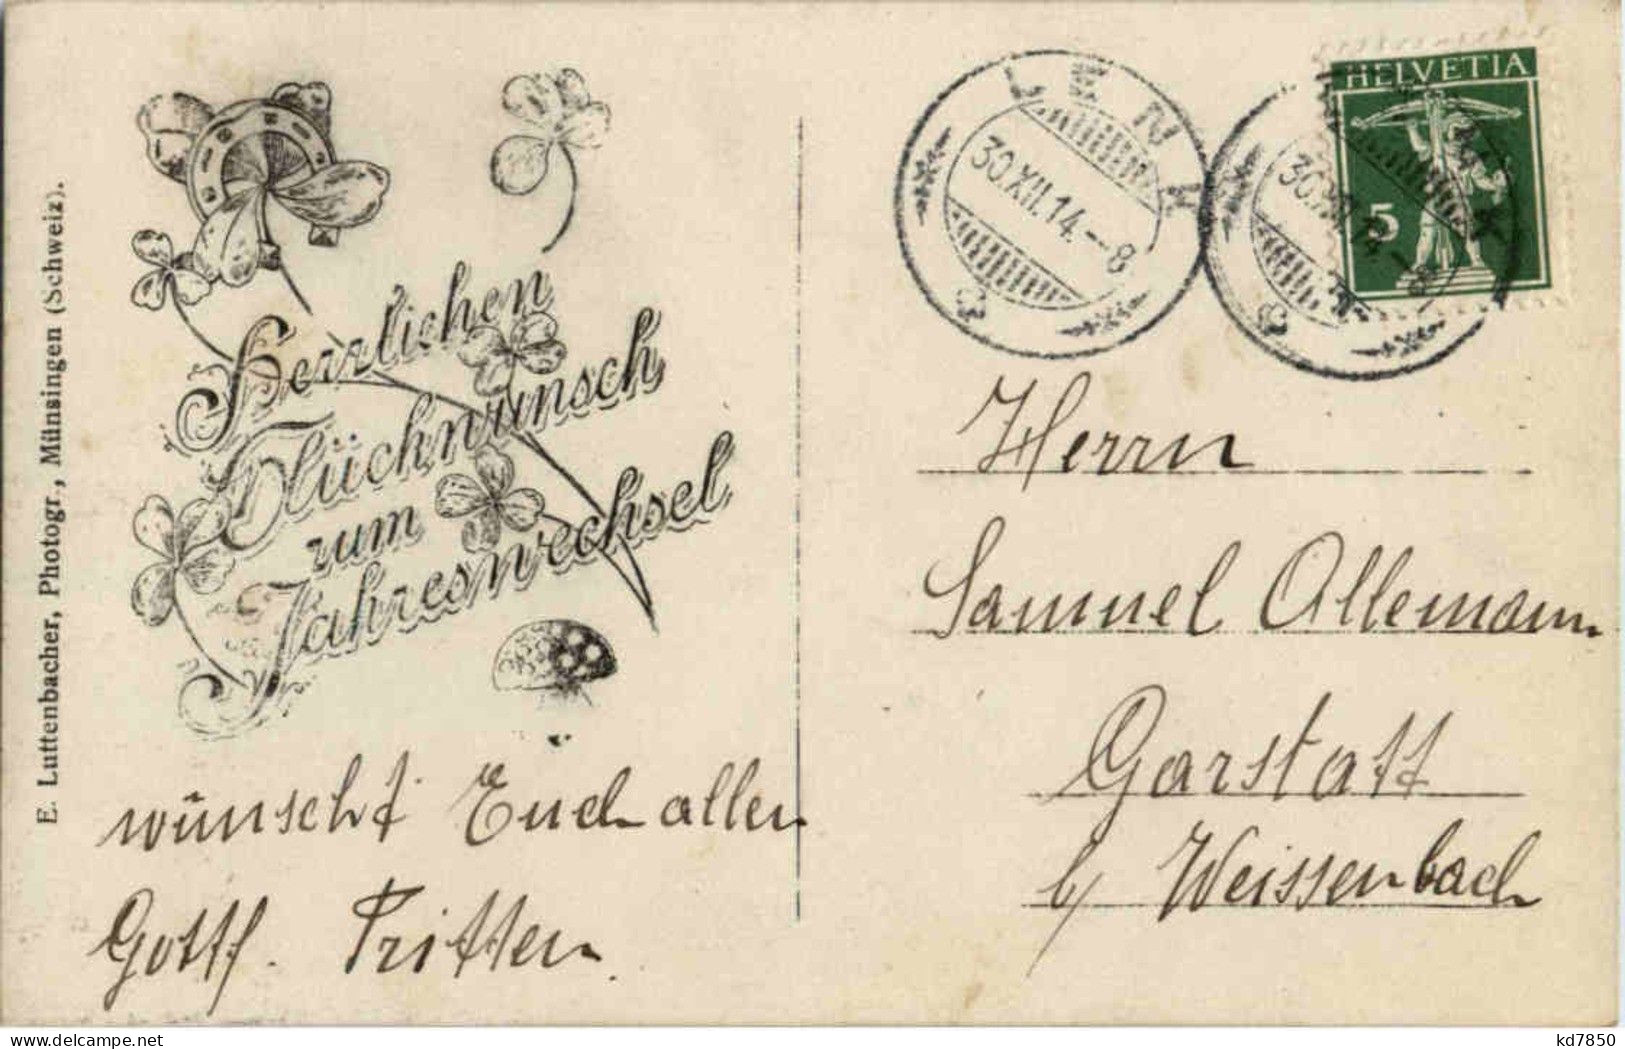 E. Luttenbacher, Photogr., Münsingen (Schweiz).
Herzlichen
Glückwunsch
zum
Jahreswechsel
wünscht Euch allen
Gottf. Tritten.
LENK
30.XII.14.-8
LENK
30.XII.14.-8
HELVETIA
5
Herrn
Samuel Allemann
Garstatt
b/ Weissenbach
kd7850